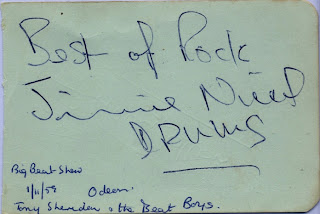 Best of Rock
Jimmie Nicol
DRUMS
Big Beat Show
1/11/59 Odeon.
Tony Sheridan & the Beat Boys.